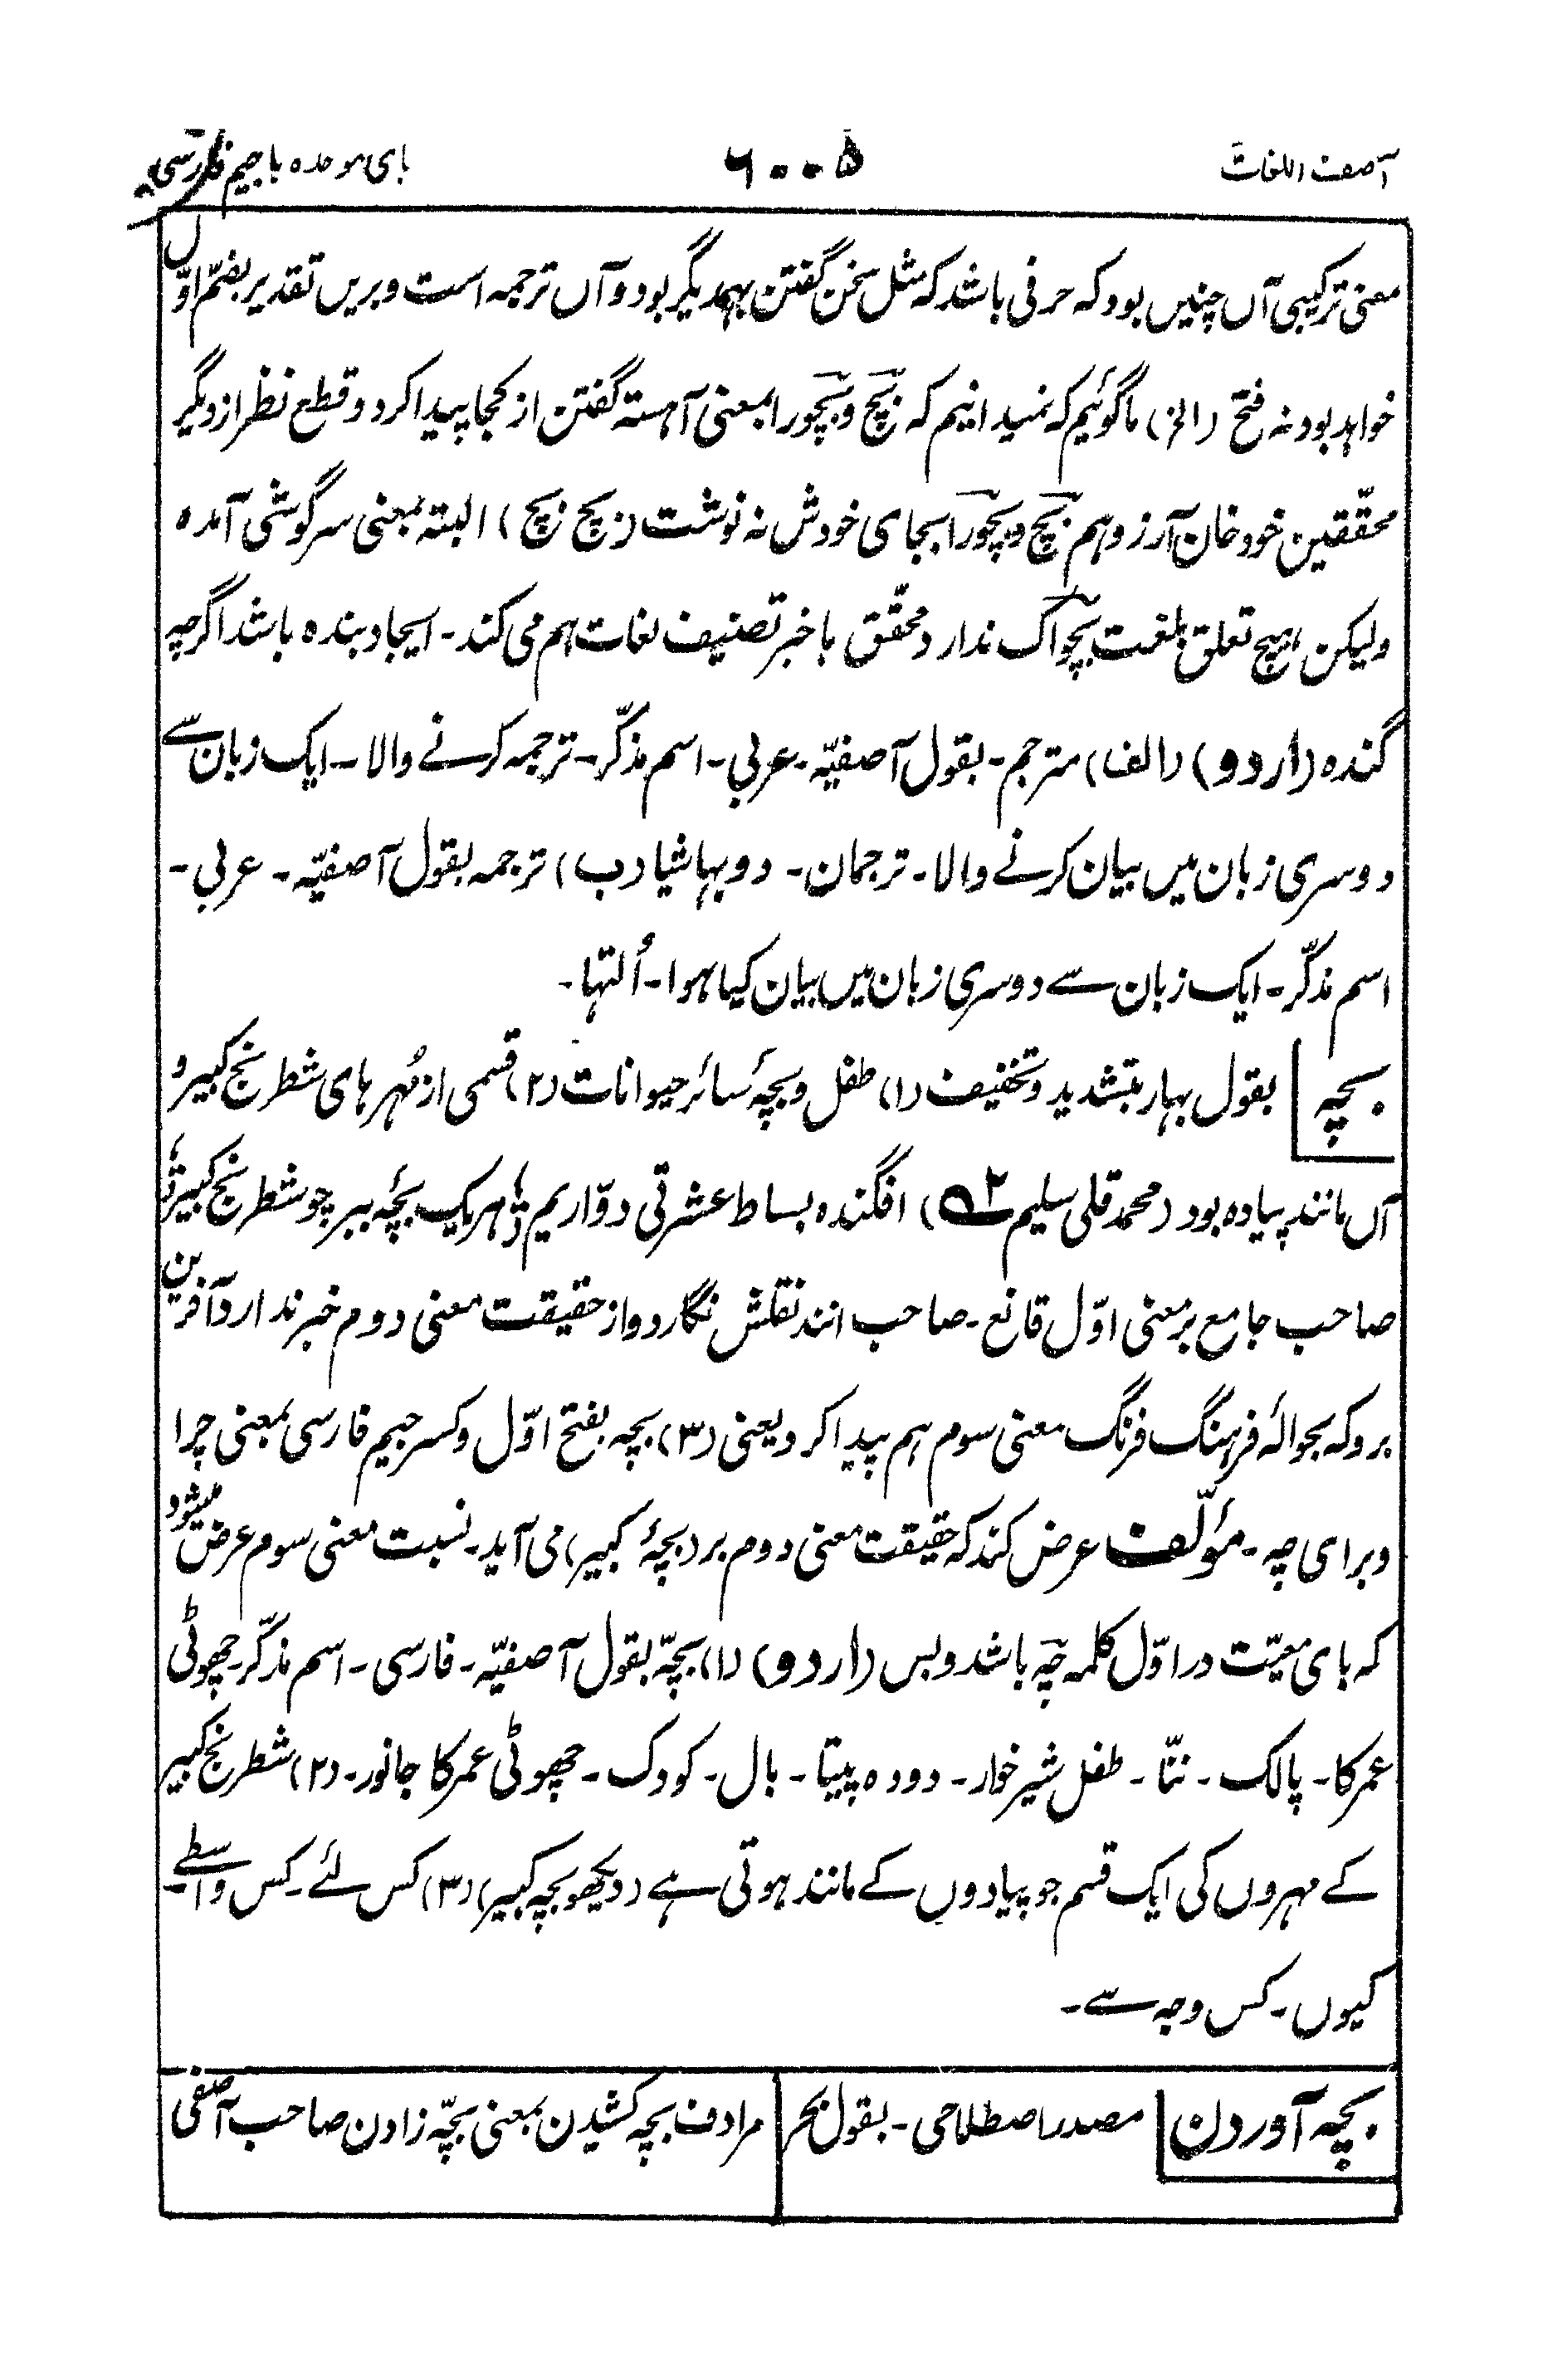 آصف اللغات ۶۰۰۵ بای موحدہ باجیم فارسی
معنی ترکیبی آں چنیں بود کہ حرفی باشد کہ مثل سخن گفتن بہمدیگر بود و آں ترجمہ است و بریں تقدیر بضمّ اوّل
خواہد بود نہ فتح (الخ) ما گوئیم کہ نمیدانیم کہ بچ و بچور ا بمعنی آہستہ گفتن از کجا پیدا کرد و قطع نظر از دیگر
محقّقین خود خان آرزو ہم بچ و بچور ا بجای خودش نہ نوشت (بچ بچ) البتہ بمعنی سرگوشی آمدہ
ولیکن ہیچ تعلق بلغت بچواک ندارد محقّق باخبر تصنیف لغات ہم می کند ۔ ایجاد بندہ باشد اگرچہ
گندہ (اردو) (الف) مترجم ۔ بقول آصفیّہ ۔ عربی ۔ اسم مذکّر ۔ ترجمہ کرنے والا ۔ ایک زبان سے
دوسری زبان میں بیان کرنے والا ۔ ترجمان ۔ دوبہاشیا (ب) ترجمہ بقول آصفیّہ ۔ عربی ۔
اسم مذکّر ۔ ایک زبان سے دوسری زبان میں بیان کیا ہوا ۔ اُلتہا ۔
بچہ بقول بہار بتشدید و تخفیف (۱) طفل و بچۂ سائر حیوانات (۲) قسمی از مُہرہای شطرنج کبیر و
آں مانند پیادہ بود (محمد قلی سلیم ۲ ؎) افگندہ بساط عشرتی دوّاریم ؛ ہریک بچۂ ببر چو شطرنج کبیر ؛
صاحب جامع بر معنی اوّل قانع ۔ صاحب انند نقلش نگار دواز حقیقت معنی دوم خبر ندارد آفرین
بروکہ بحوالۂ فرہنگ فرنگ معنی سوم ہم پیدا کرد یعنی (۳) بچہ بفتح اوّل و کسر جیم فارسی بمعنی چرا
و برای چہ ۔ مؤلّف عرض کند کہ حقیقت معنی دوم بر (بچۂ کبیر) می آید ۔ نسبت معنی سوم عرض میشود
کہ بای معیّت در اوّل کلمہ چہ باشد و بس (اردو) (۱) بچّہ بقول آصفیّہ ۔ فارسی ۔ اسم مذکّر ۔ چھوٹی
عمر کا ۔ پالک ۔ ننّا ۔ طفل شیر خوار ۔ دودہ پیتا ۔ بال ۔ کودک ۔ چھوٹی عمر کا جانور ۔ (۲) شطرنج کبیر
کے مہروں کی ایک قسم جو پیادوں کے مانند ہوتی ہے (دیکھو بچہ کبیر) (۳) کس لئے ۔ کس واسطے ۔
کیوں ۔ کس وجہ سے ۔
بچہ آوردن مصدر اصطلاحی ۔ بقول بحر
مرادف بچہ کشیدن بمعنی بچّہ زادن صاحب آصفی